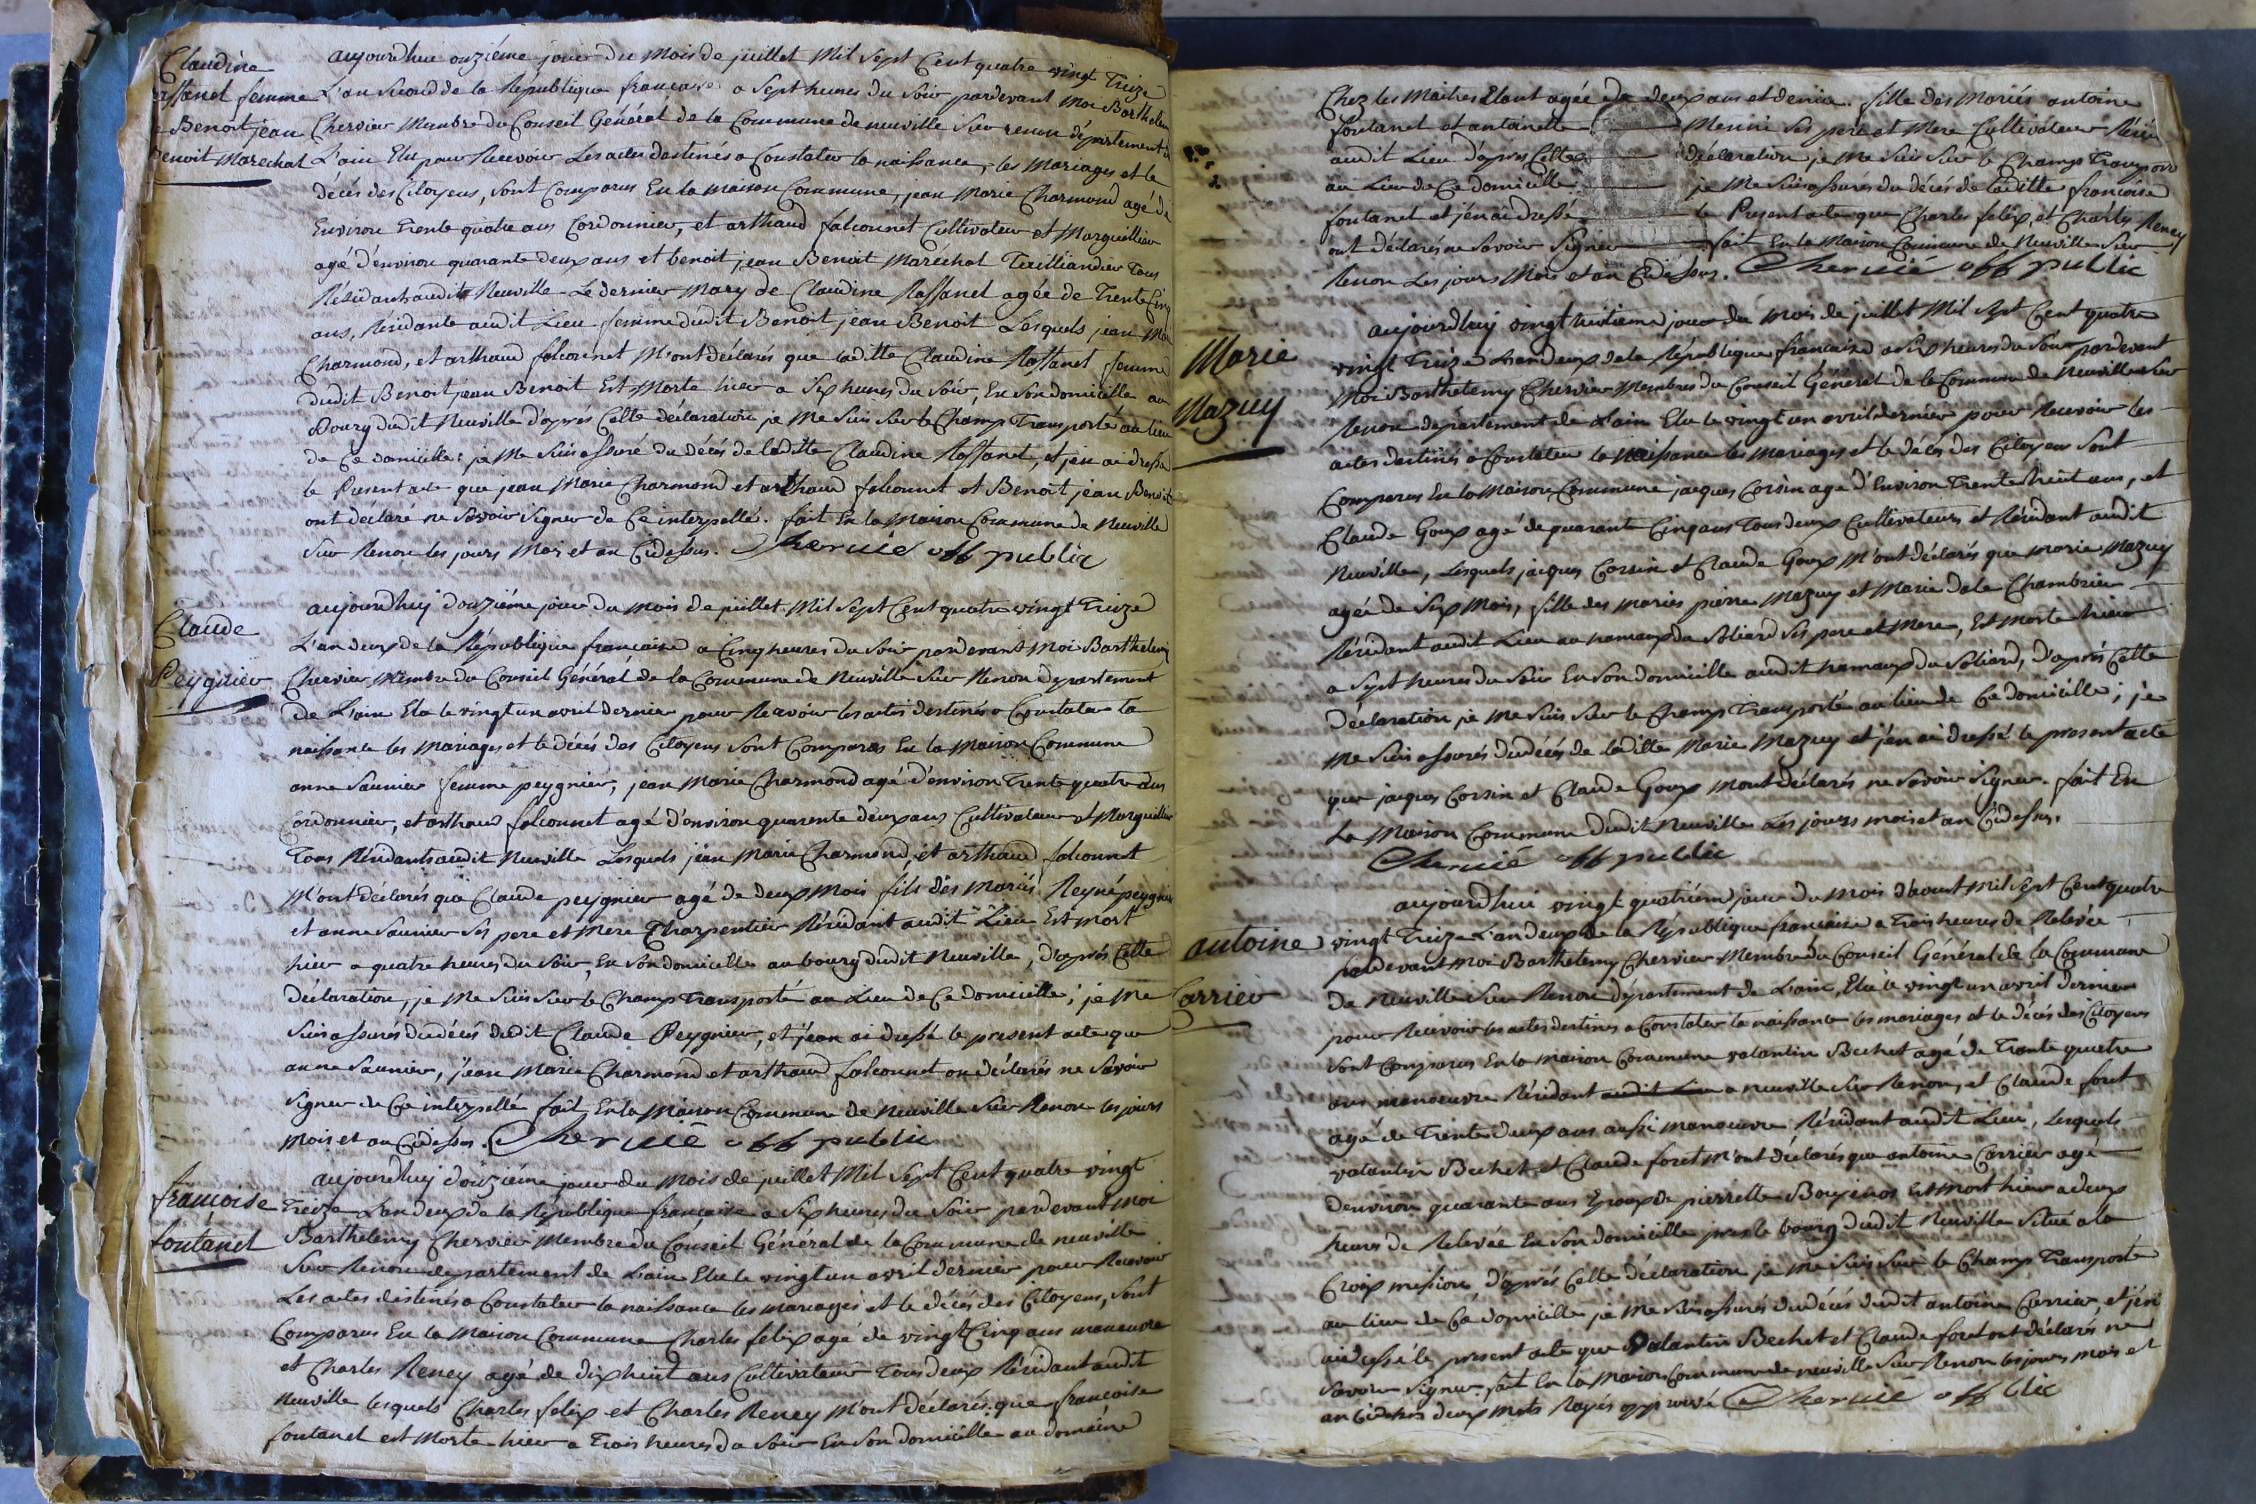 Claudine
Raffanel femme
Benoit jean
Benoit Marechal
aujourdhui onziéme jour du Mois de juillet Mil Sept Cent quatre vingt Treize
L'an Second de la République francaise a Sept heures du Soir pardevant Moi Barthelemy
Chervier Membre du Conseil Général de la Commune de neuville Sur renon département
L'ain Elu pour Recevoir Les actes destinés a Constater la naissance, les Mariages et le
décés des Citoyens, Sont Comparus En la maison Commune, jean Marie Charmond agé de
Environ Trente quatre ans Cordonnier, et arthaud falconnet Cultivateur et Marguillier
agé d'environ quarante deux ans et benoit jean Benoit Maréchal Tailliandier Tous
Résidants audit Neuville Le dernier Mary de Claudine Raffanel agée de Trente Cinq
ans, Résidante audit Lieu femme dudit Benoit jean Benoit Lesquels jean Marie
Charmond, et arthaud falconnet M'ont déclarés que laditte Claudine Raffanel femme
dudit Benoit jean Benoit Est Morte hier a Six heures du Soir, En Son domicille au
Bourg dudit Neuville d'aprés Cette déclaration je Me Suis Sur le Champ Transporté au lieu
de Ce domicille; je Me Suis assuré du décés de laditte Claudine Raffanel, et j'en ai dressé
le Present acte que jean Marie Charmond et arthaud falconnet et Benoit jean Benoit
ont déclaré ne Savoir Signer de Ce interpellé. fait En la Maison Commune de Neuville
Sur Renon les jours Mois et an Cidessus. Chervié off public
Claude
Peygnier
aujourdhuj douziéme jour du Mois de juillet Mil Sept Cent quatre vingt Treize
L'an deux de la République francaise a Cinq heures du Soir pardevant Moi Barthelemy
Chervier Membre du Conseil Général de la Commune de Neuville Sur Renon departement
de L'ain Elu le vingt un avril dernier pour Recevoir les actes destinés a Constater la
naissance les Mariages et le décés des Citoyens Sont Comparus En la Maison Commune
anne Saunier femme peygnier, jean Marie Charmond agé d'environ Trente quatre ans
Cordonnier, et arthaud falconnet agé d'environ quarente deux ans Cultivateur et Marguillier
Tous Résidants audit Neuville Lesquels jean Marie Charmond et arthaud falconnet
M'ont déclarés que Claude peygnier agé de deux Mois fils des Mariés Reyné peygnier
et anne Saunier Ses pere et Mere Charpentier Résidant audit Lieu Est Mort
hier a quatre heures du Soir, En Son domicille au bourg dudit Neuville, d'aprés Cette
déclaration, je Me Suis Sur le Champ Transporté au Lieu de Ce domicille; je Me
Suis assurés du décés dudit Claude Peygnier, et j'en ai dressé le present acte que
anne Saunier, jean Marie Charmond et arthaud falconnet on déclarés ne Savoir
Signer de Ce interpellé fait En la Maison Commune de Neuville Sur Renon les jours
Mois et an Cidessus. Chervié off public
francoise
fontanel
aujourdhuj douziéme jour du Mois de juillet Mil Sept Cent quatre vingt
Treize L'an deux de la République française a Six heures du Soir pardevant Moi
Barthelemy Chervier Membre du Conseil Général de la Commune de neuville
Sur Renon departement de L'ain Elu le vingt un avril dernier pour Recevoir
Les actes destinés a Constater la naissance les mariages et le décés des Citoyens, Sont
Comparus En la Maison Commune Charles felix agé de vingt Cinq ans maneuvre
et Charles Reney agé de dix huit ans Cultivateur Tous deux Résidant audit
Neuville lesquels Charles felix et Charles Reney M'ont déclarés que francoise
fontanel est Morte hier a Trois heures du Soir En Son domicille au domaine
Chez les Maitres Etant agée de deux ans et demie. fille des Mariés antoine
fontanel et antoinette Ses pere et Mere Cultivateur
audit Lieu d'aprés Cette déclaration je Me Suis Sur le Champ Transporté
au Lieu de Ce domicille je Me Suis assurés du décés de laditte francoise
fontanel et j'en ai dressé le Present acte que Charles felix, et Charles Reney
ont déclarés ne Savoir Signer fait En la Maison Commune de Neuville Sur
Renon Les jours Mois et an Cidessus. Chervié off public
Marie
Mazuy
aujourdhuj vingt huitieme jour du mois de juillet Mil Sept Cent quatre
vingt Treize L'an deux de la République francaise a Six heures du Soir pardevant
Moi Barthelemy Chervier Membres du Conseil Général de la Commune de Neuville Sur
Renon département de L'ain Elu le vingt un avril dernier pour Recevoir les
actes destinés a Constater la naissance les Mariages et le décés des Citoyens Sont
Comparus En la Maison Commune jacques Corsin agé d'Environ Trente huit ans, et
Claude Goux agé de quarante Cinq ans Tous deux Cultivateurs et Résidant audit
Neuville, Lesquels jacques Corsin et Claude Goux M'ont déclarés que Marie Mazuy
agée de Six Mois, fille des Mariés pierre Mazuy et Marie dela Chambrier
Résidant audit Lieu au hameaux du Soliard Ses pere et Mere, Est Morte hier
a Sept heures du Soir En Son domicille audit hameaux du Soliard, d'aprés Cette
déclaration je Me Suis Sur le Champ Transporté au lieu de Ce domicille; je
Me Suis assurés du décés de laditte Marie Mazuy et j'en ai dressé le present acte
que jacques Corsin et Claude Goux M'ont déclarés ne Savoir Signer. fait En
La Maison Commune dudit Neuville Les jours mois et an Cidessus.
Chervié off public
antoine
Carrier
aujourdhui vingt quatriéme jour du Mois d'aout Mil Sept Cent quatre
vingt Treize L'an deux de la République francaise a Trois heures de Relevée
pardevant Moi Barthelemy Chervier Membre du Conseil Général de la Commune
de Neuville Sur Renon département de L'ain, Elu le vingt un avril dernier
pour Recevoir les actes destinés a Constater la naissance les mariages et le décés des Citoyens
Sont Comparus En la Maison Commune valantin Bechet agé de Trante quatre
ans manoeuvre Résidant audit Lieu a neuville Sur Renon, et Claude foret
agé de Trente deux ans aussi manoeuvre Résidant audit Lieu, Lesquels
valantin Bechet et Claude foret M'ont déclarés que antoine Carrier agé
denviron quarante ans Epoux de pierrette Est Mort hier a deux
heures de Relevée En Son domicille pres le bourg dudit Neuville Situé a la
Croix mission, d'aprés Cette déclaration je me Suis Sur le Champ Transporté
au lieu de Ce domicille je Me Suis assurés du décés dudit antoine Carrier, et j'en
ai dressé le present acte que valantin Bechet et Claude foret ont déclarés ne
Savoir Signer. fait En la Maison Commune de neuville Sur Renon les jours mois et
an Cidessus deux mots Rayés approuvé Chervié off